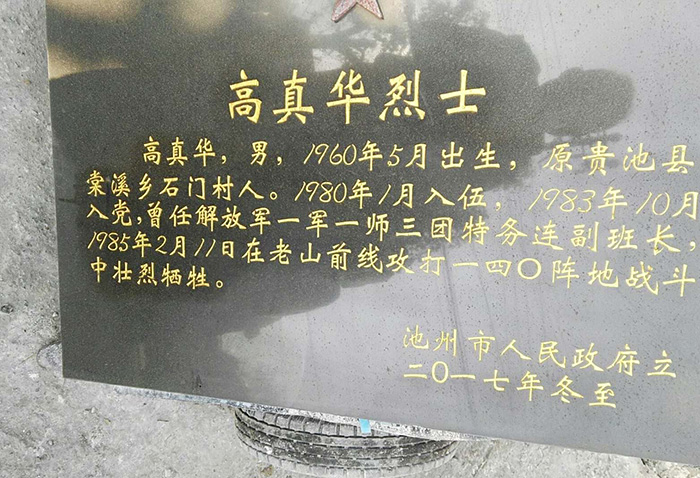 高真华烈士
高真华，男，1960年5月出生，原贵池县
棠溪乡石门村人。1980年1月入伍，1983年10月
入党，曾任解放军一军一师三团特务连副班长，
1985年2月11日在老山前线攻打一四〇阵地战斗
中壮烈牺牲。
池州市人民政府立
二〇一七年冬至